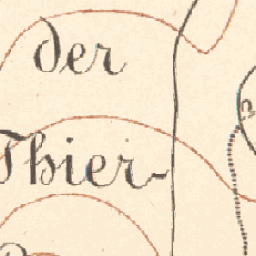 der
Thier-